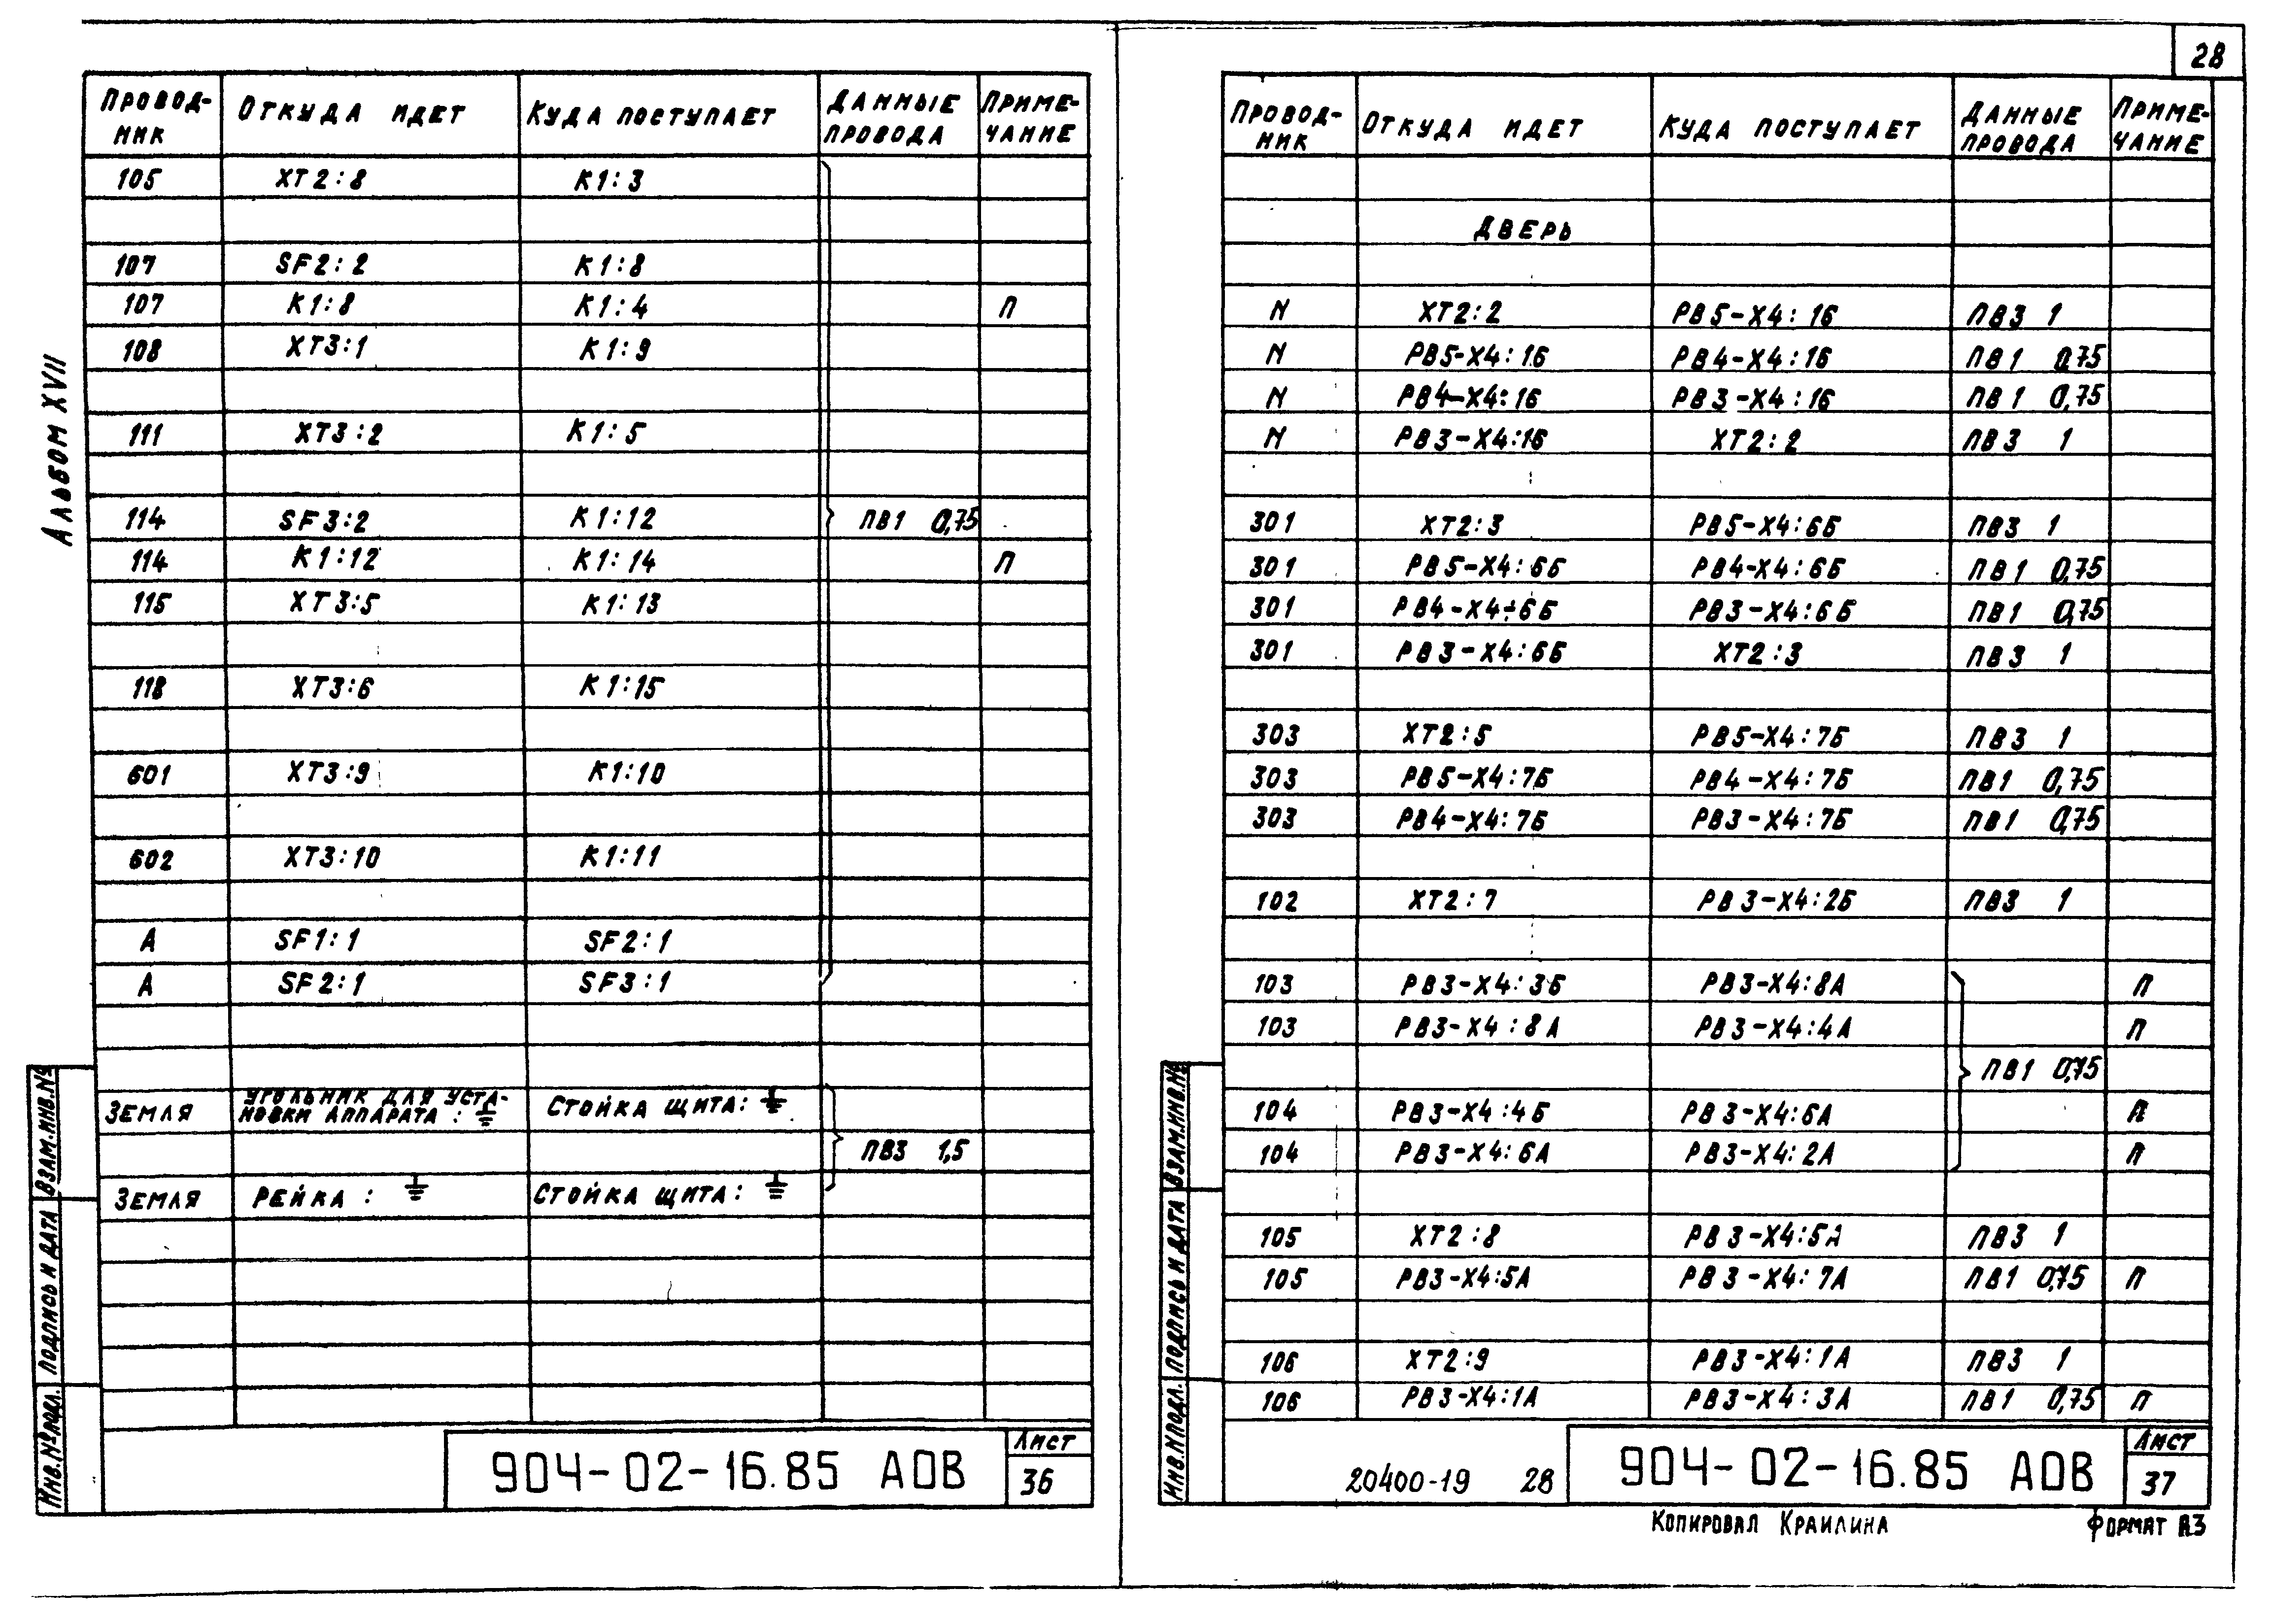 28
Альбом XVII
Провод- Откуда идет Куда поступает Данные Приме-
ник провода чание
105 XT2:8 K1:3
107 SF2:2 K1:8
107 K1:8 K1:4 П
108 XT3:1 K1:9
111 XT3:2 K1:5
114 SF3:2 K1:12 ПВ1 0,75
114 K1:12 K1:14 П
115 XT3:5 K1:13
118 XT3:6 K1:15
601 XT3:9 K1:10
602 XT3:10 K1:11
А SF1:1 SF2:1
А SF2:1 SF3:1
Земля Угольник для уста-
новки аппарата : ⏚ Стойка щита: ⏚
ПВ3 1,5
Земля Рейка : ⏚ Стойка щита: ⏚
Инв.№подл. Подпись и дата Взам.инв.№
904-02-16.85 АОВ
Лист
36
Провод- Откуда идет Куда поступает Данные Приме-
ник провода чание
Дверь
N XT2:2 PB5-X4:16 ПВ3 1
N PB5-X4:16 PB4-X4:16 ПВ1 0,75
N PB4-X4:16 PB3-X4:16 ПВ1 0,75
N PB3-X4:16 XT2:2 ПВ3 1
301 XT2:3 PB5-X4:6Б ПВ3 1
301 PB5-X4:6Б PB4-X4:6Б ПВ1 0,75
301 PB4-X4:6Б PB3-X4:6Б ПВ1 0,75
301 PB3-X4:6Б XT2:3 ПВ3 1
303 XT2:5 PB5-X4:7Б ПВ3 1
303 PB5-X4:7Б PB4-X4:7Б ПВ1 0,75
303 PB4-X4:7Б PB3-X4:7Б ПВ1 0,75
102 XT2:7 PB3-X4:2Б ПВ3 1
103 PB3-X4:3Б PB3-X4:8А П
103 PB3-X4:8А PB3-X4:4А П
ПВ1 0,75
104 PB3-X4:4Б PB3-X4:6А П
104 PB3-X4:6А PB3-X4:2А П
105 XT2:8 PB3-X4:5А ПВ3 1
105 PB3-X4:5А PB3-X4:7А ПВ1 0,75 П
106 XT2:9 PB3-X4:1А ПВ3 1
106 PB3-X4:1А PB3-X4:3А ПВ1 0,75 П
Инв.№подл. Подпись и дата Взам.инв.№
20400-19 28
904-02-16.85 АОВ
Лист
37
Копировал Краилина Формат А3